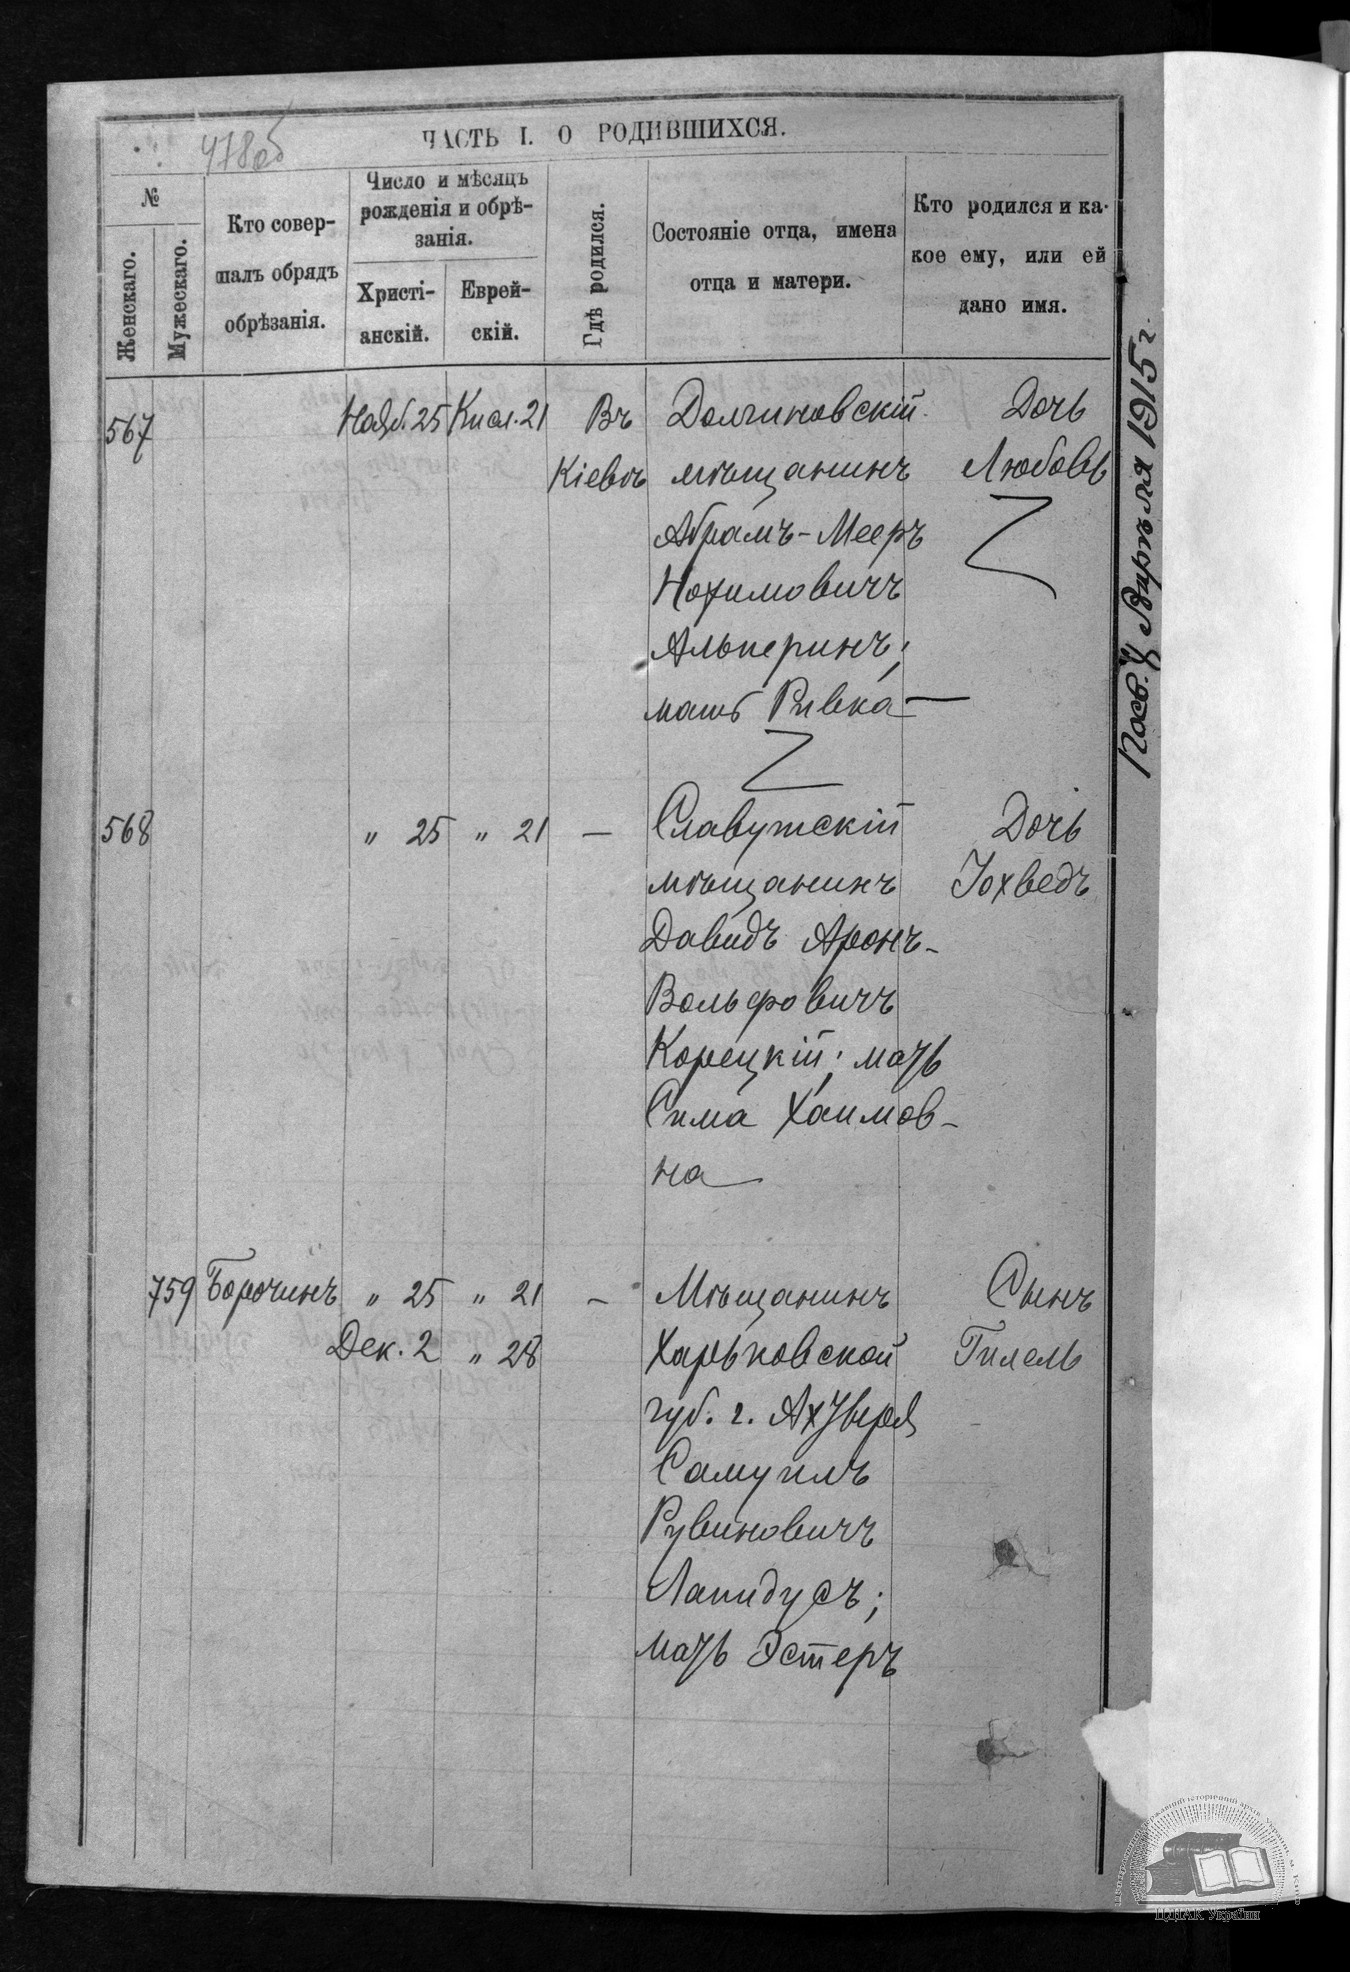 478об
ЧАСТЬ I. О РОДИВШИХСЯ.
№
Женскаго.
Мужескаго.
Кто совер-
шалъ обрядъ
обрѣзанія.
Число и мѣсяцъ
рожденія и обрѣ-
занія.
Христі-
анскій.
Еврей-
скій.
Гдѣ родился.
Состояніе отца, имена
отца и матери.
Кто родился и ка-
кое ему, или ей
дано имя.
567 Нояб. 25 Кисл. 21 Въ Долгиновскій Дочь
Кіевѣ мѣщанинъ Любовь
Абрамъ-Мееръ
Нохимовичъ
Альперинъ;
мать Ривка
568 " 25 " 21 — Славутскій Дочь
мѣщанинъ Іохведъ
Давидъ Аронъ-
Вольфовичъ
Корецкій; мать
Сима Хаимов-
на
759 Борочинъ " 25 " 21 — Мѣщанинъ Сынъ
Дек. 2 " 28 Харьковской Гилель
губ. г.
Самуилъ
Рувиновичъ
Лапидусъ;
мать Эстеръ
1915 г.
ЦДІАК України